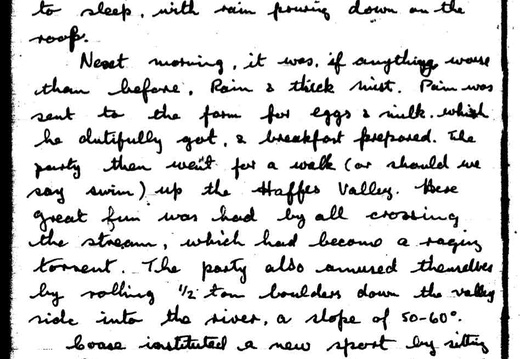 to sleep, with rain pouring down on the
roof.
Next morning, it was, if anything, worse
than before, Rain & thick mist. Pain was
sent to the farm for eggs & milk, which
he dutifully got, & breakfast prepared. The
party then went for a walk (or should we
say swim) up the Haffes Valley. Here
great fun was had by all crossing
the stream, which had become a raging
torrent. The party also amused themselves
by rolling ½ ton boulders down the valley
side into the river, a slope of 50-60°.
Coase instituted a new sport by sitting